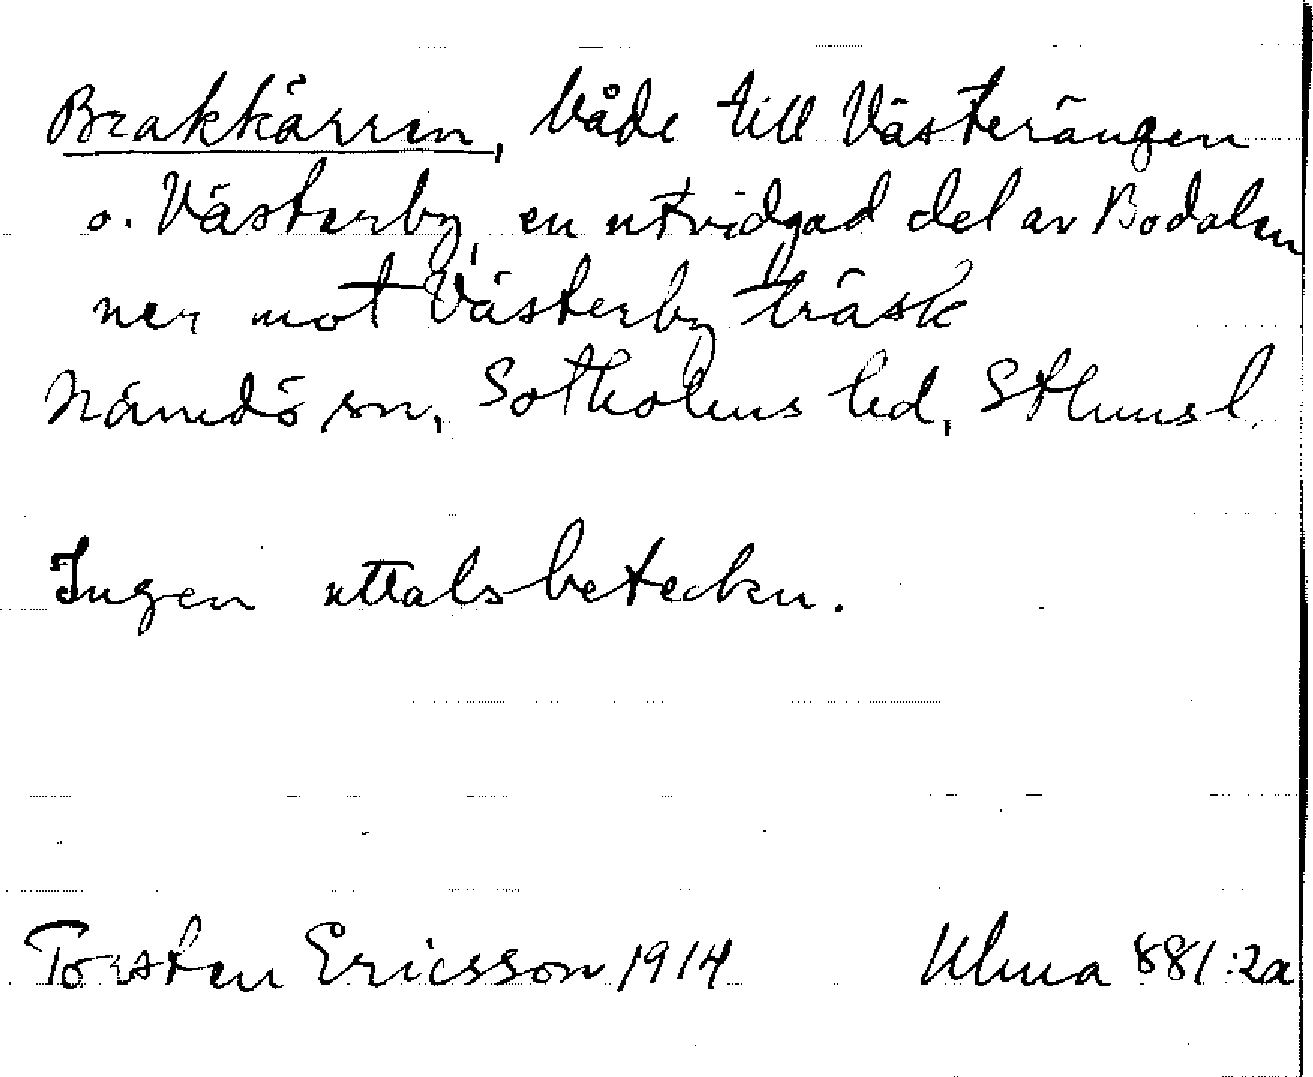 Brakkärren, både till Västerängen
o. Västerby, en utvidgad del av Bodalen
ner mot Västerby träsk
Nämdö sn, Sotholms hd, Sthms l.
Ingen uttalsbeteckn.
Torsten Ericsson 1914 Ulma 881:2a